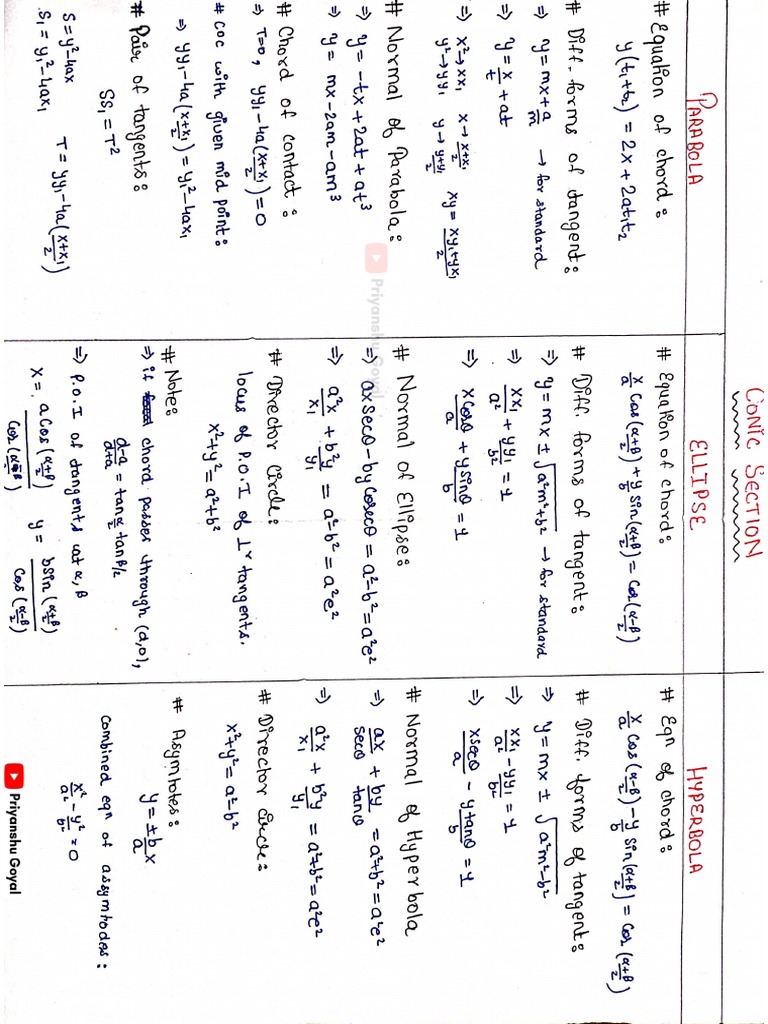 CONIC SECTION
PARABOLA
# Equation of chord:
y(t₁+t₂) = 2x + 2at₁t₂
# Diff. forms of tangent:
⇒ y = mx + a/m → for standard
⇒ y = x/t + at
⇒ x² → xx₁ x → (x+x₁)/2 xy = (xy₁+yx₁)/2
y² → yy₁ y → (y+y₁)/2
# Normal of Parabola:
⇒ y = -tx + 2at + at³
⇒ y = mx - 2am - am³
# Chord of contact:
⇒ T=0, yy₁ - 4a((x+x₁)/2) = 0
# COC with given mid point:
⇒ yy₁ - 4a((x+x₁)/2) = y₁² - 4ax₁
# Pair of tangents:
SS₁ = T²
S = y² - 4ax T = yy₁ - 4a((x+x₁)/2)
S₁ = y₁² - 4ax₁
ELLIPSE
# Equation of chord:
x/a cos((α+β)/2) + y/b sin((α+β)/2) = cos((α-β)/2)
# Diff. forms of tangent:
⇒ y = mx ± √(a²m²+b²) → for standard
⇒ xx₁/a² + yy₁/b² = 1
⇒ xcosθ/a + ysinθ/b = 1
# Normal of Ellipse:
⇒ axsecθ - bycosecθ = a²-b² = a²e²
⇒ a²x/x₁ + b²y/y₁ = a²-b² = a²e²
# Director Circle:
locus of P.O.I of ⊥ʳ tangents.
x²+y² = a²+b²
# Note:
⇒ if chord passes through (d,0),
(d-a)/(d+a) = tan α/2 tan β/2
⇒ P.O.I of tangents at α, β
x = acos((α+β)/2)/cos((α-β)/2) y = bsin((α+β)/2)/cos((α-β)/2)
HYPERBOLA
# Eqn of chord:
x/a cos((α-β)/2) - y/b sin((α+β)/2) = cos((α+β)/2)
# Diff. forms of tangent:
⇒ y = mx ± √(a²m²-b²)
⇒ xx₁/a² - yy₁/b² = 1
⇒ xsecθ/a - ytanθ/b = 1
# Normal of Hyperbola
⇒ ax/secθ + by/tanθ = a²+b² = a²e²
⇒ a²x/x₁ + b²y/y₁ = a²+b² = a²e²
# Director Circle:
x²+y² = a²-b²
# Asymtotes:
y = ± b/a x
combined eqn of assymtodes:
x²/a² - y²/b² = 0
Priyanshu Goyal
Priyanshu Goyal